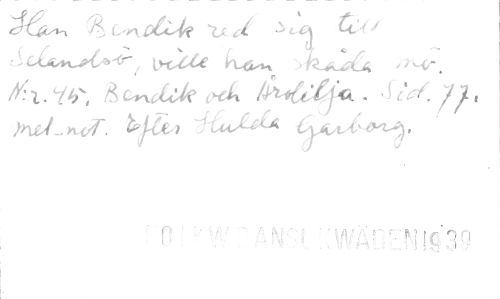 Han Bendik red sig till
Selandsö, ville han skåda mö.
N:r. 45. Bendik och Årolilja. Sid. 77.
mel-not. Efter Hulda Garborg.
FOLKW DANSL KWÄDEN 1939